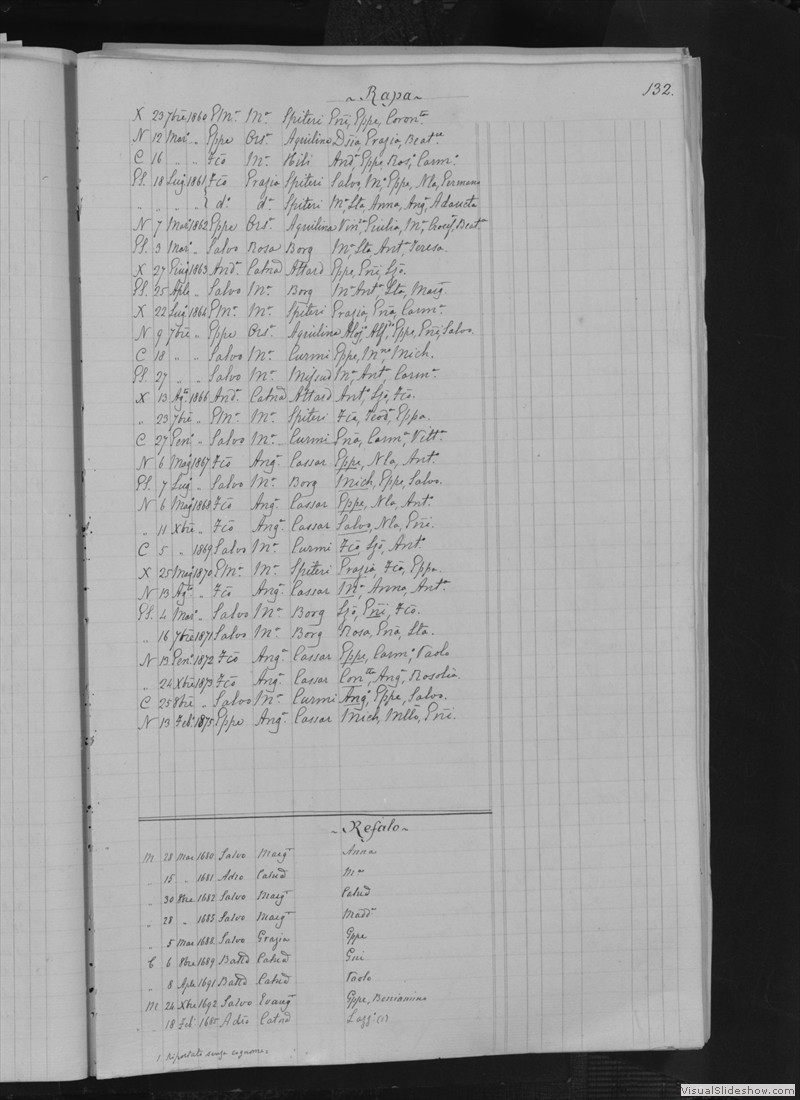 132.
~ Rapa ~
X 23 7bre 1860 P/Mª Mª Spiteri Eppe, Coronta
N 12 Mar° „ Eppe Orsª Aquilina Grazia, Beatce
C 16 „ „ Fco Mª Hili Andª Eppe Rosª Carmª
Ps. 18 Lug 1861 Fco Grazia Spiteri Salvo, Mª, Eppe, Nla, Germana
„ „ „ d° d° Spiteri Mª, Sta, Anna, Angª Adaucta
N 7 Mar 1862 Eppe Orsª Aquilina Giulia, Mª, Beatª
Ps. 3 Mar° „ Salvo Rosa Borg Mª, Sta, Antª, Teresa
X 27 Giug 1863 Andª Catna Attard Eppe, Gni, Sjo.
Ps. 25 Aple „ Salvo Mª Borg Mª Antª Sta, Marg.
X 22 Lug 1864 P/Mª Mª Spiteri Grazia, Gna, Carmª
N 9 7bre „ Eppe Orsª Aquilina Eppe, Gni, Salvo.
C 18 „ „ Salvo Mª Curmi Eppe, Mich.
Ps. 27 „ „ Salvo Mª Mifsud Mª, Antª, Carmª
X 13 Ag° 1866 Andª Catna Attard Antª, Sjo, Fco.
„ 23 7bre „ P/Mª Mª Spiteri Fca, Teodª, Eppa.
C 27 Gen° „ Salvo Mª Curmi Gna, Carmª, Vittª
N 6 Mag 1867 Fco Angª Cassar Eppe, Nla, Antª
Ps. 7 Lug „ Salvo Mª Borg Mich, Eppe, Salvo.
N 6 Mag 1868 Fco Angª Cassar Eppe, Nla, Antª
„ 11 Xbre „ Fco Angª Cassar Salvo, Nla, Gni.
C 5 „ 1869 Salvo Mª Curmi Fco, Sjo, Antª
X 25 Mag 1870 P/Mª Mª Spiteri Grazia, Fca, Eppa.
N 13 Ag° „ Fco Angª Cassar Mª, Anna, Antª
Ps. 4 Mar° „ Salvo Mª Borg Sjo, Gni, Fco.
„ 16 7bre 1871 Salvo Mª Borg Rosa, Gna, Sta.
N 13 Gen° 1872 Fco Angª Cassar Eppe, Carm° Paolo
„ 24 Xbre 1873 Fco Angª Cassar Angª, Rosolia
C 25 8bre „ Salvo Mª Curmi Ang° Eppe, Salvo.
N 13 Feb° 1875 Eppe Angª Cassar Mich, Gni.
~ Refalo ~
M 28 Mar 1680 Salvo Margª Anna
„ 15 „ 1681 Adeo Catna Mª
„ 30 8bre 1682 Salvo Margª Catna
„ 28 „ 1685 Salvo Margª Maddª
„ 5 Mar 1688 Salvo Grazia Eppe
C 6 8bre 1689 Batta Catna Gni
„ 8 Aple 1691 Batta Catna Paolo
M 24 Xbre 1692 Salvo Evangª Eppe, Beniamino
„ 18 Feb° 1685 Adeo Catna Lazz° (1)
1. Riportato senza cognome
VisualSlideshow.com